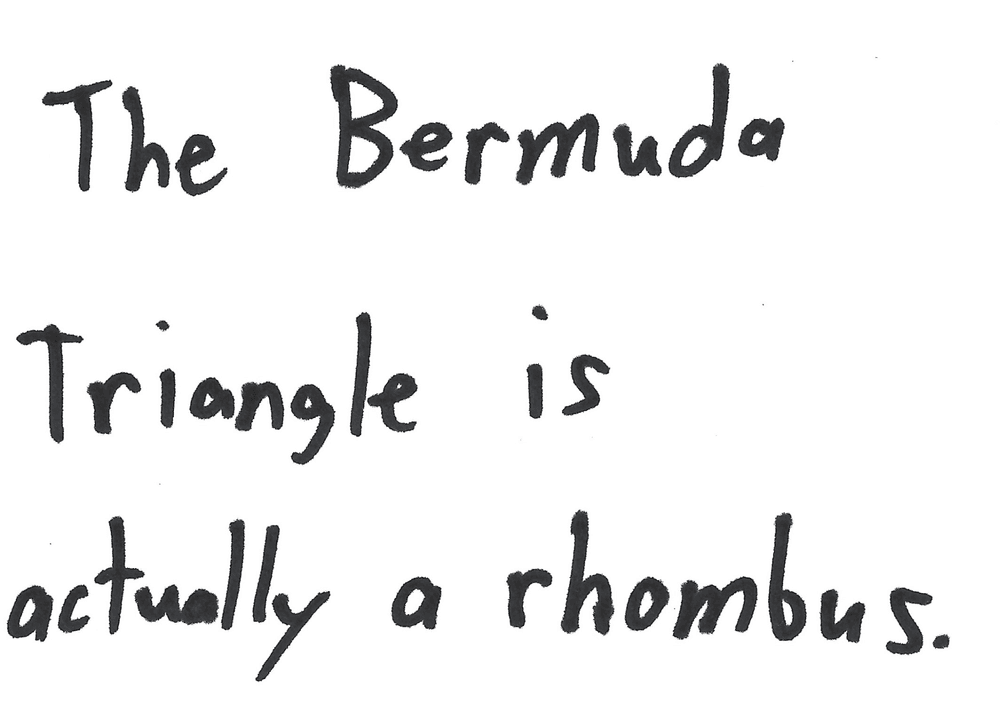 The Bermuda
Triangle is
actually a rhombus.